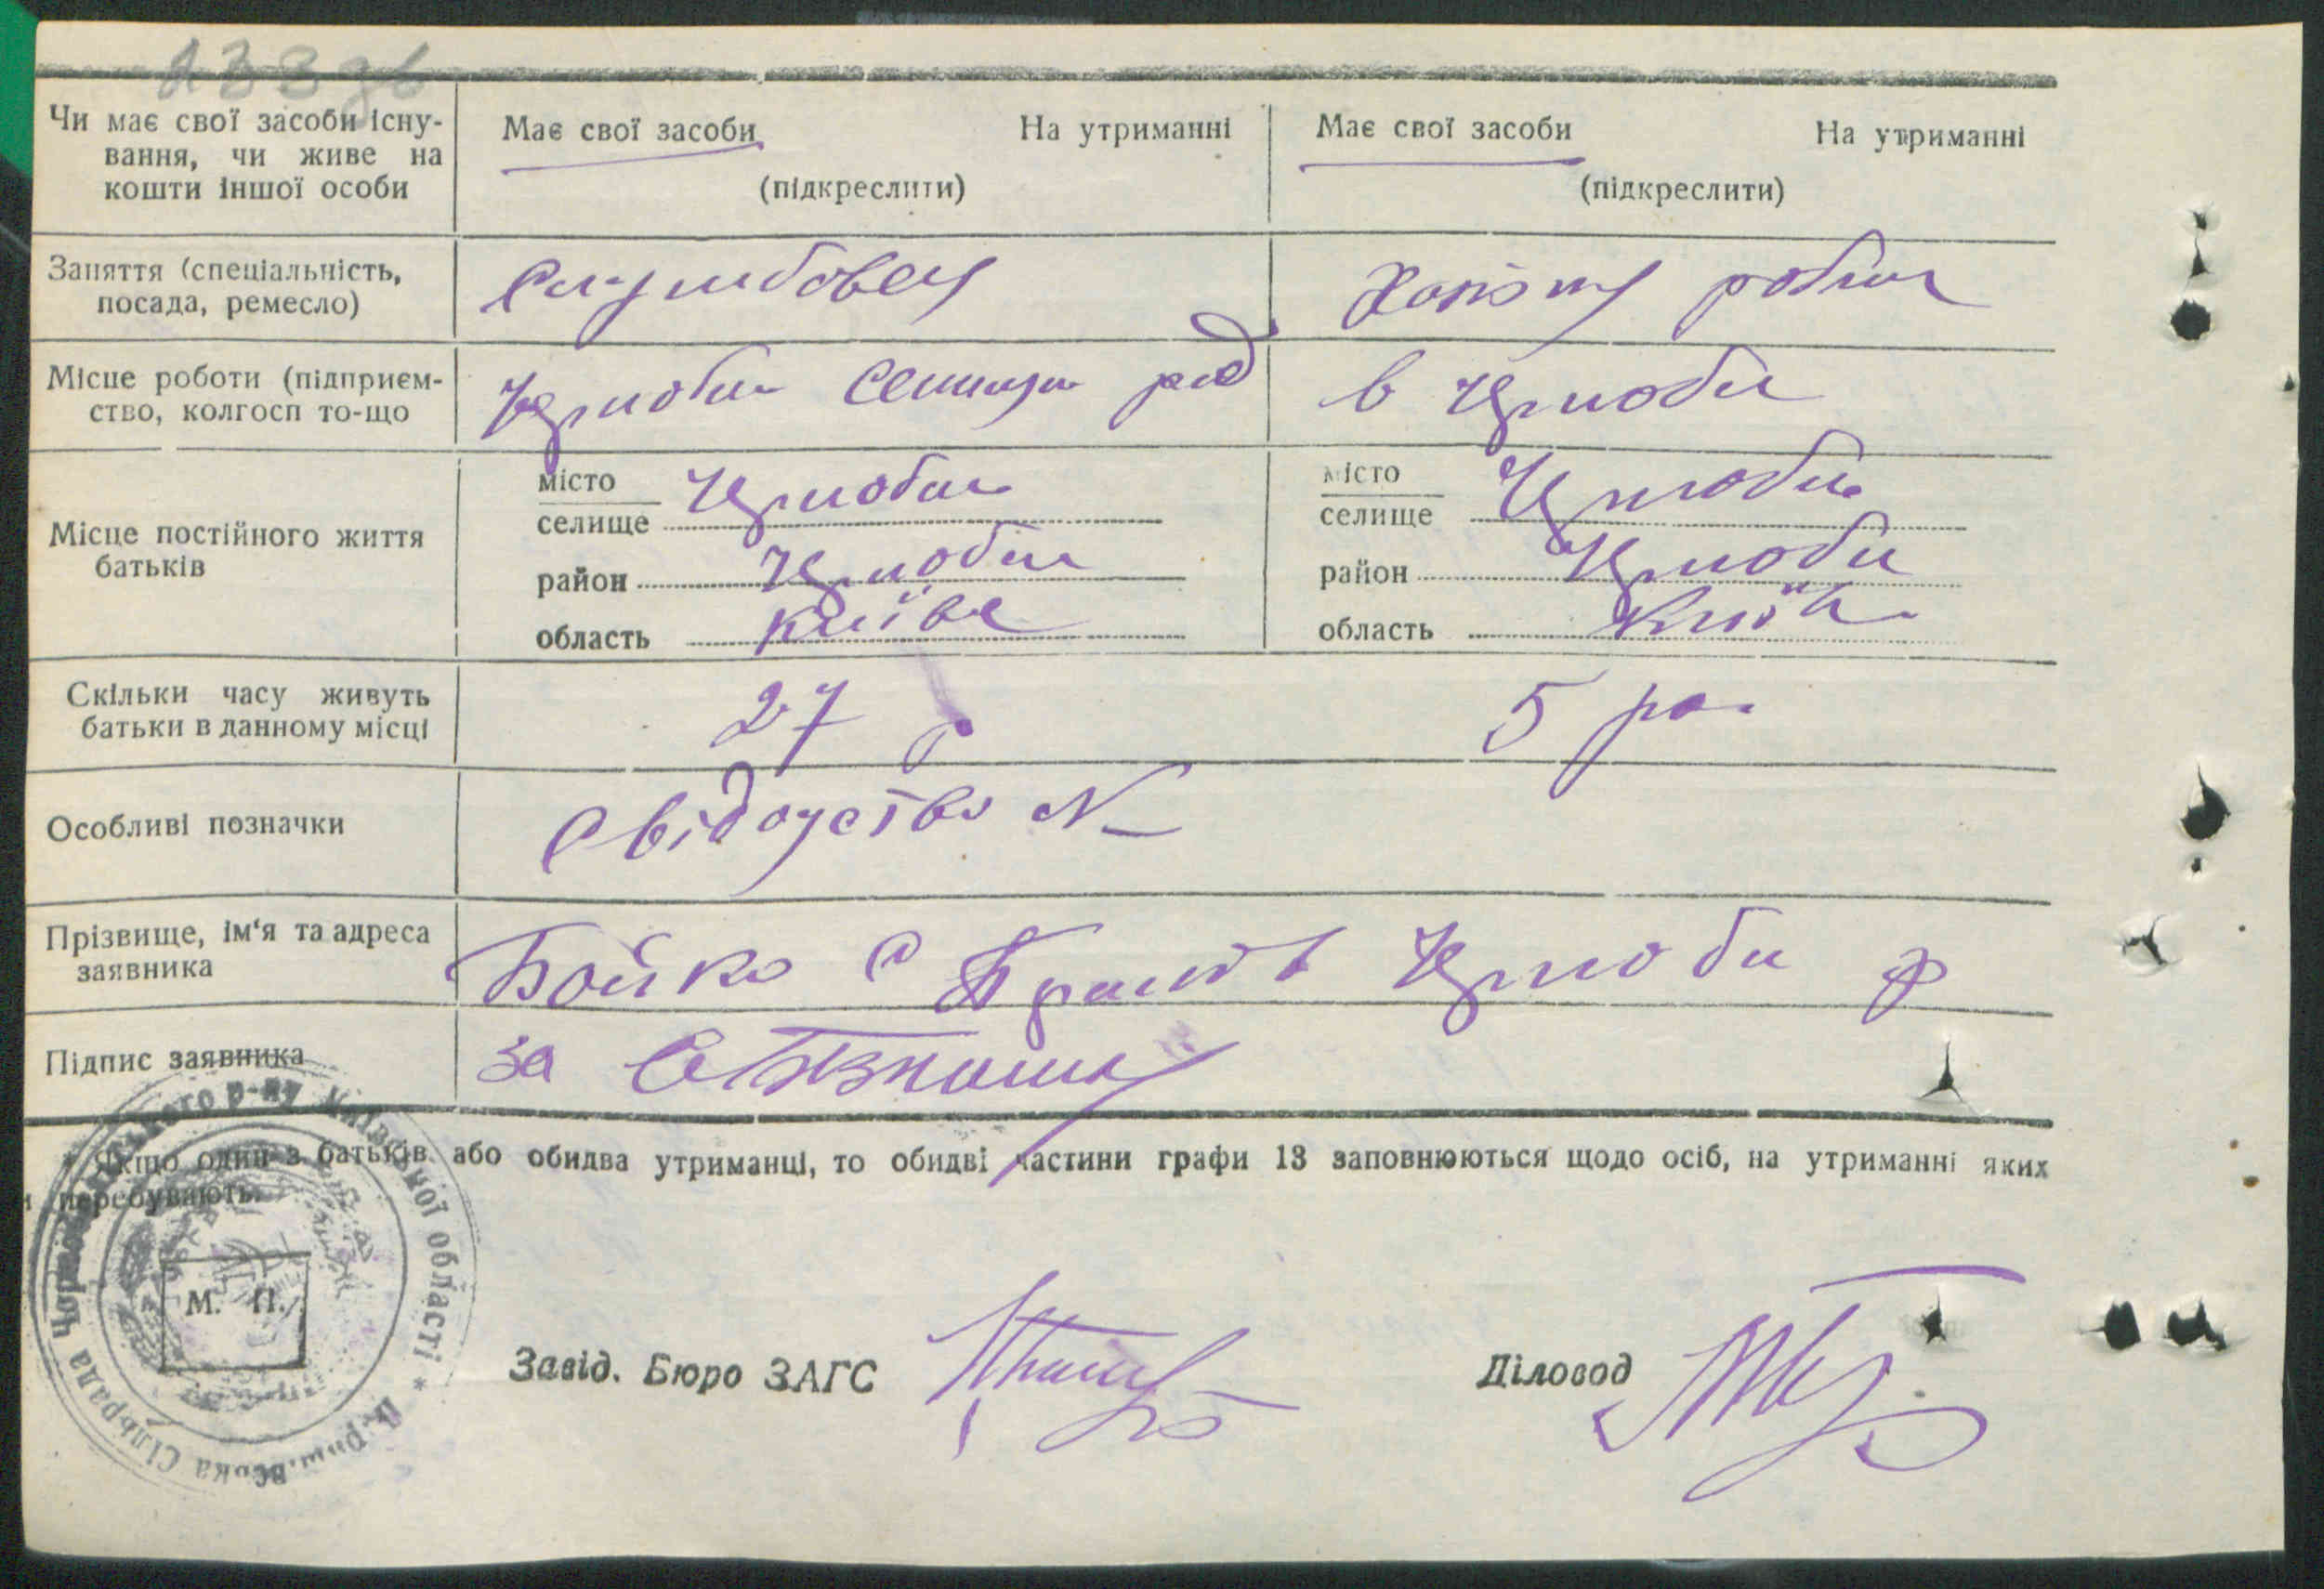 133зв
Чи має свої засоби існу-
вання, чи живе на
кошти іншої особи
Має свої засоби На утриманні
(підкреслити)
Має свої засоби На утриманні
(підкреслити)
Заняття (спеціальність,
посада, ремесло)
Службовец
робит
Місце роботи (підприєм-
ство, колгосп то-що
Чорнобил рад
в Чорноби
Місце постійного життя
батьків
місто
селище Чорнобил
район Чорнобил
область Київс
місто
селище Чорнобил
район Чорноби
область Київ
Скільки часу живуть
батьки в данному місці
27 р
5 ро
Особливі позначки
Свідоцтво №
Прізвище, ім'я та адреса
заявника
Бойко С Чорноби р
Підпис заявника
за
* Якщо один з батьків або обидва утриманці, то обидві частини графи 13 заповнюються щодо осіб, на утриманні яких
перебувають.
М. П.
Завід. Бюро ЗАГС
Діловод
Київської області * сільрада